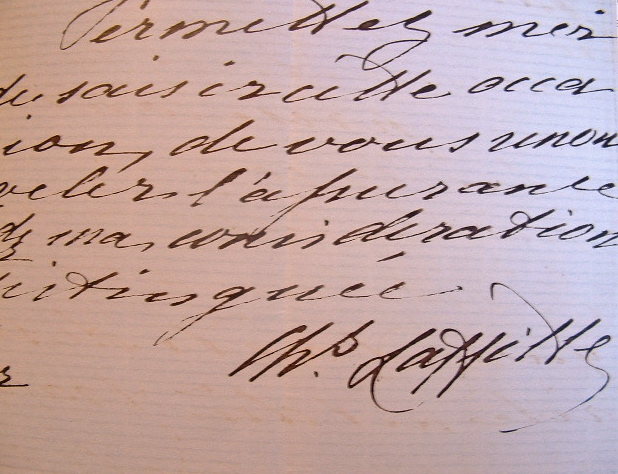 Permettez moi
de saisir cette occa
ion, de vous renou
veler l'assurance
de ma, considération
distinguée.
Ch.s Laffitte